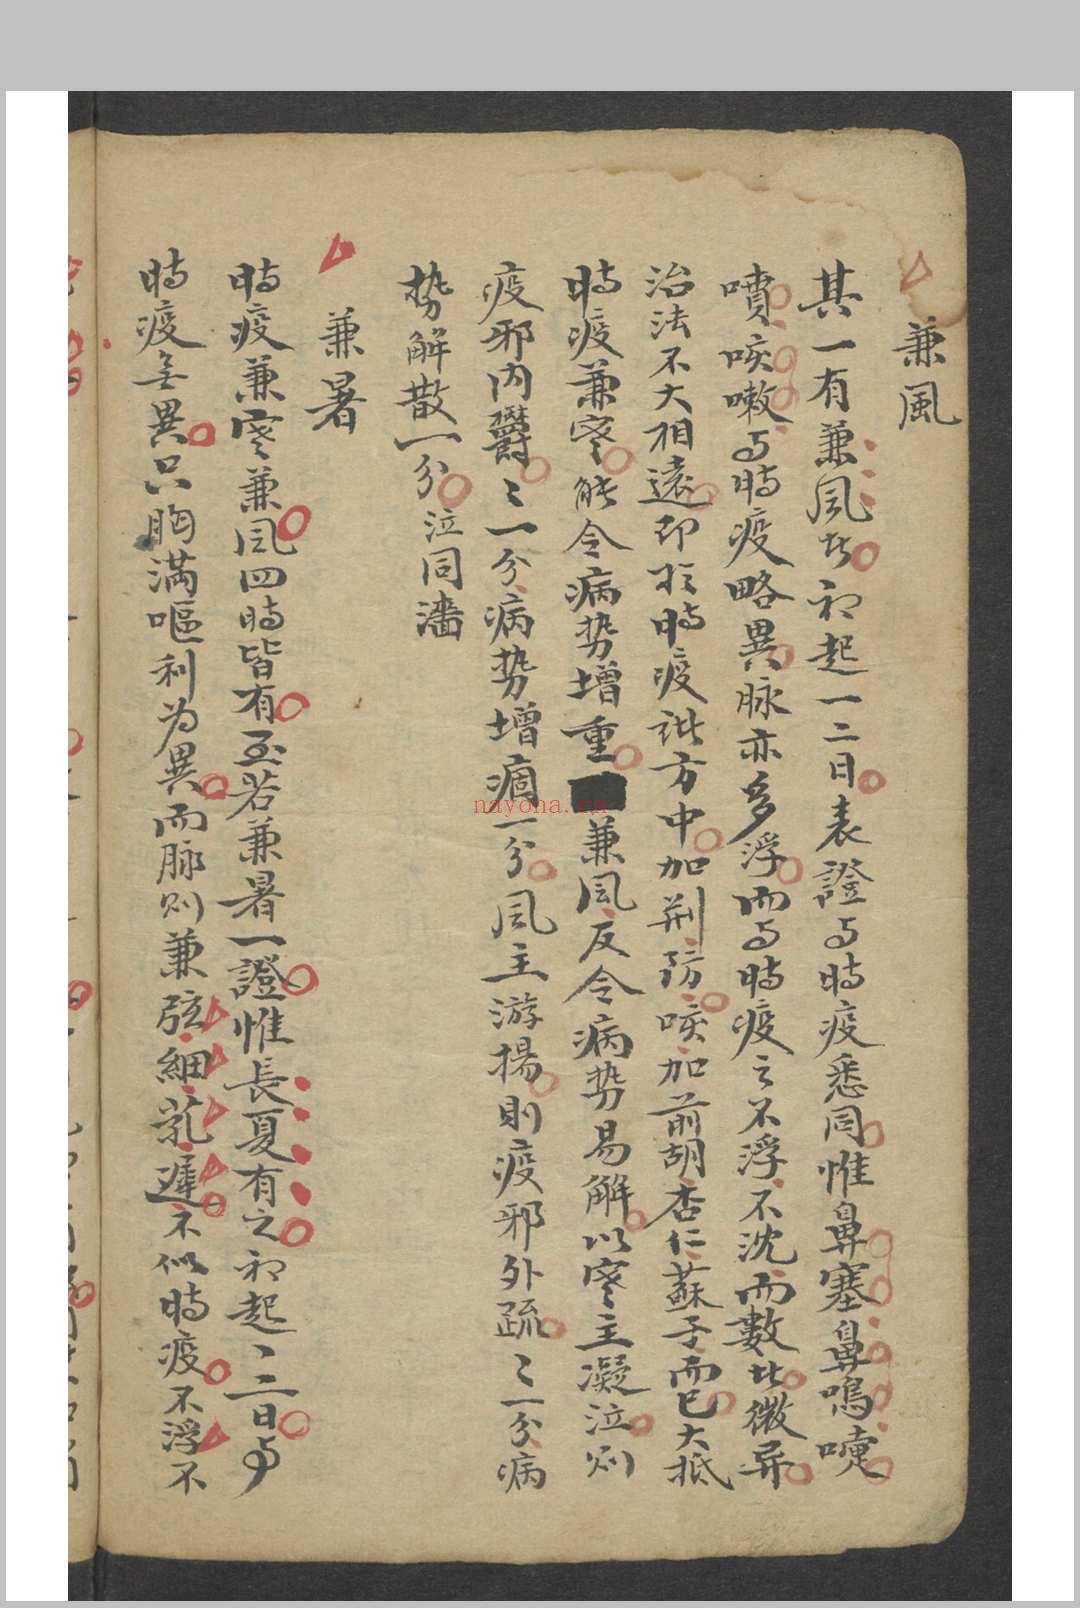 兼風
其一有兼風者初起一二日表證与時疫悉同惟鼻塞鼻鳴嚏
噴咳嗽与時疫略異脉亦多浮而与時疫之不浮不沈而數者微異
治法不大相遠即於時疫諸方中加荆防咳加前胡杏仁蘇子而已大抵
時疫兼寒能令病势增重兼風反令病势易解以寒主凝泣则
疫邪内鬱〻一分病势增痼一分風主游揚則疫邪外疏〻一分病
势解散一分泣同濇
兼暑
時疫兼寒兼風四時皆有至若兼暑一證惟長夏有之初起一二日与
時疫無異只胸满嘔利为異而脉则兼弦細芤遲不似時疫不浮不
nayona.cn